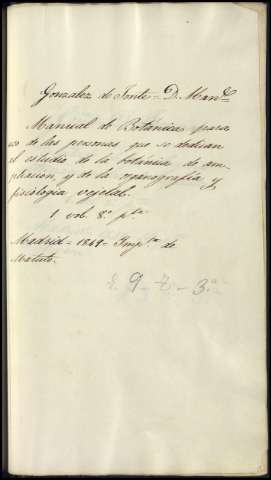 Gonzalez de Jonte = D. Man.l
Manual de Botánica para
uso de las personas que se dedican
al estudio de la botánica de am-
pliacion, y de la organografía y
fisiología vegetal.
1. vol. 8.º pta
Madrid = 1869 = Imp.ta de
Matute.
E. 9 - 7 - 3.a